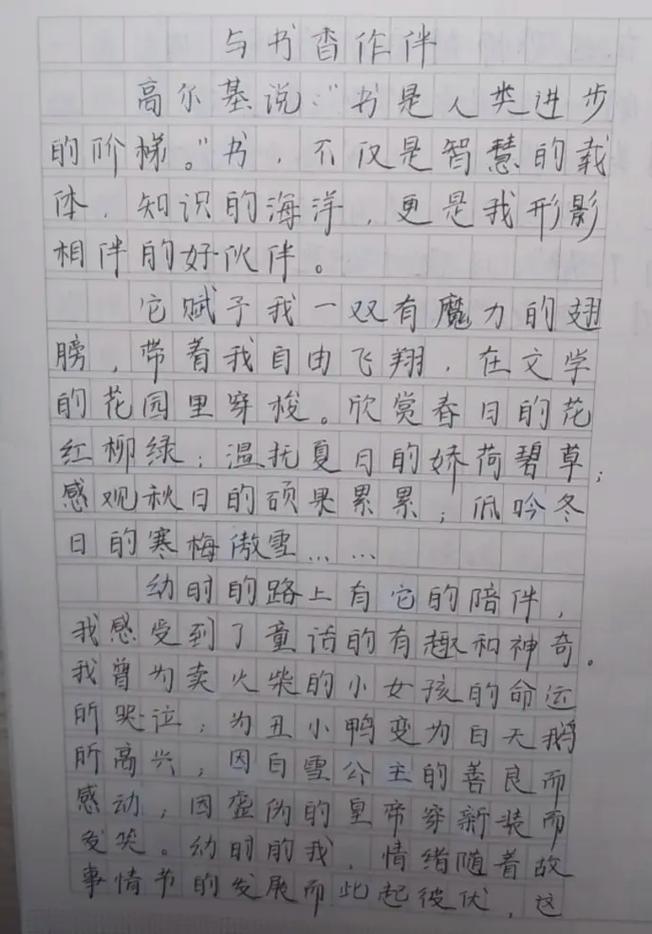 与书香作伴
高尔基说：“书是人类进步
的阶梯。”书，不仅是智慧的载
体，知识的海洋，更是我形影
相伴的好伙伴。
它赋予我一双有魔力的翅
膀，带着我自由飞翔，在文学
的花园里穿梭。欣赏春日的花
红柳绿；温抚夏日的娇荷碧草；
感观秋日的硕果累累；低吟冬
日的寒梅傲雪……
幼时的路上有它的陪伴，
我感受到了童话的有趣和神奇。
我曾为卖火柴的小女孩的命运
所哭泣；为丑小鸭变为白天鹅
所高兴；因白雪公主的善良而
感动；因虚伪的皇帝穿新装而
发笑。幼时的我，情绪随着故
事情节的发展而此起彼伏，这